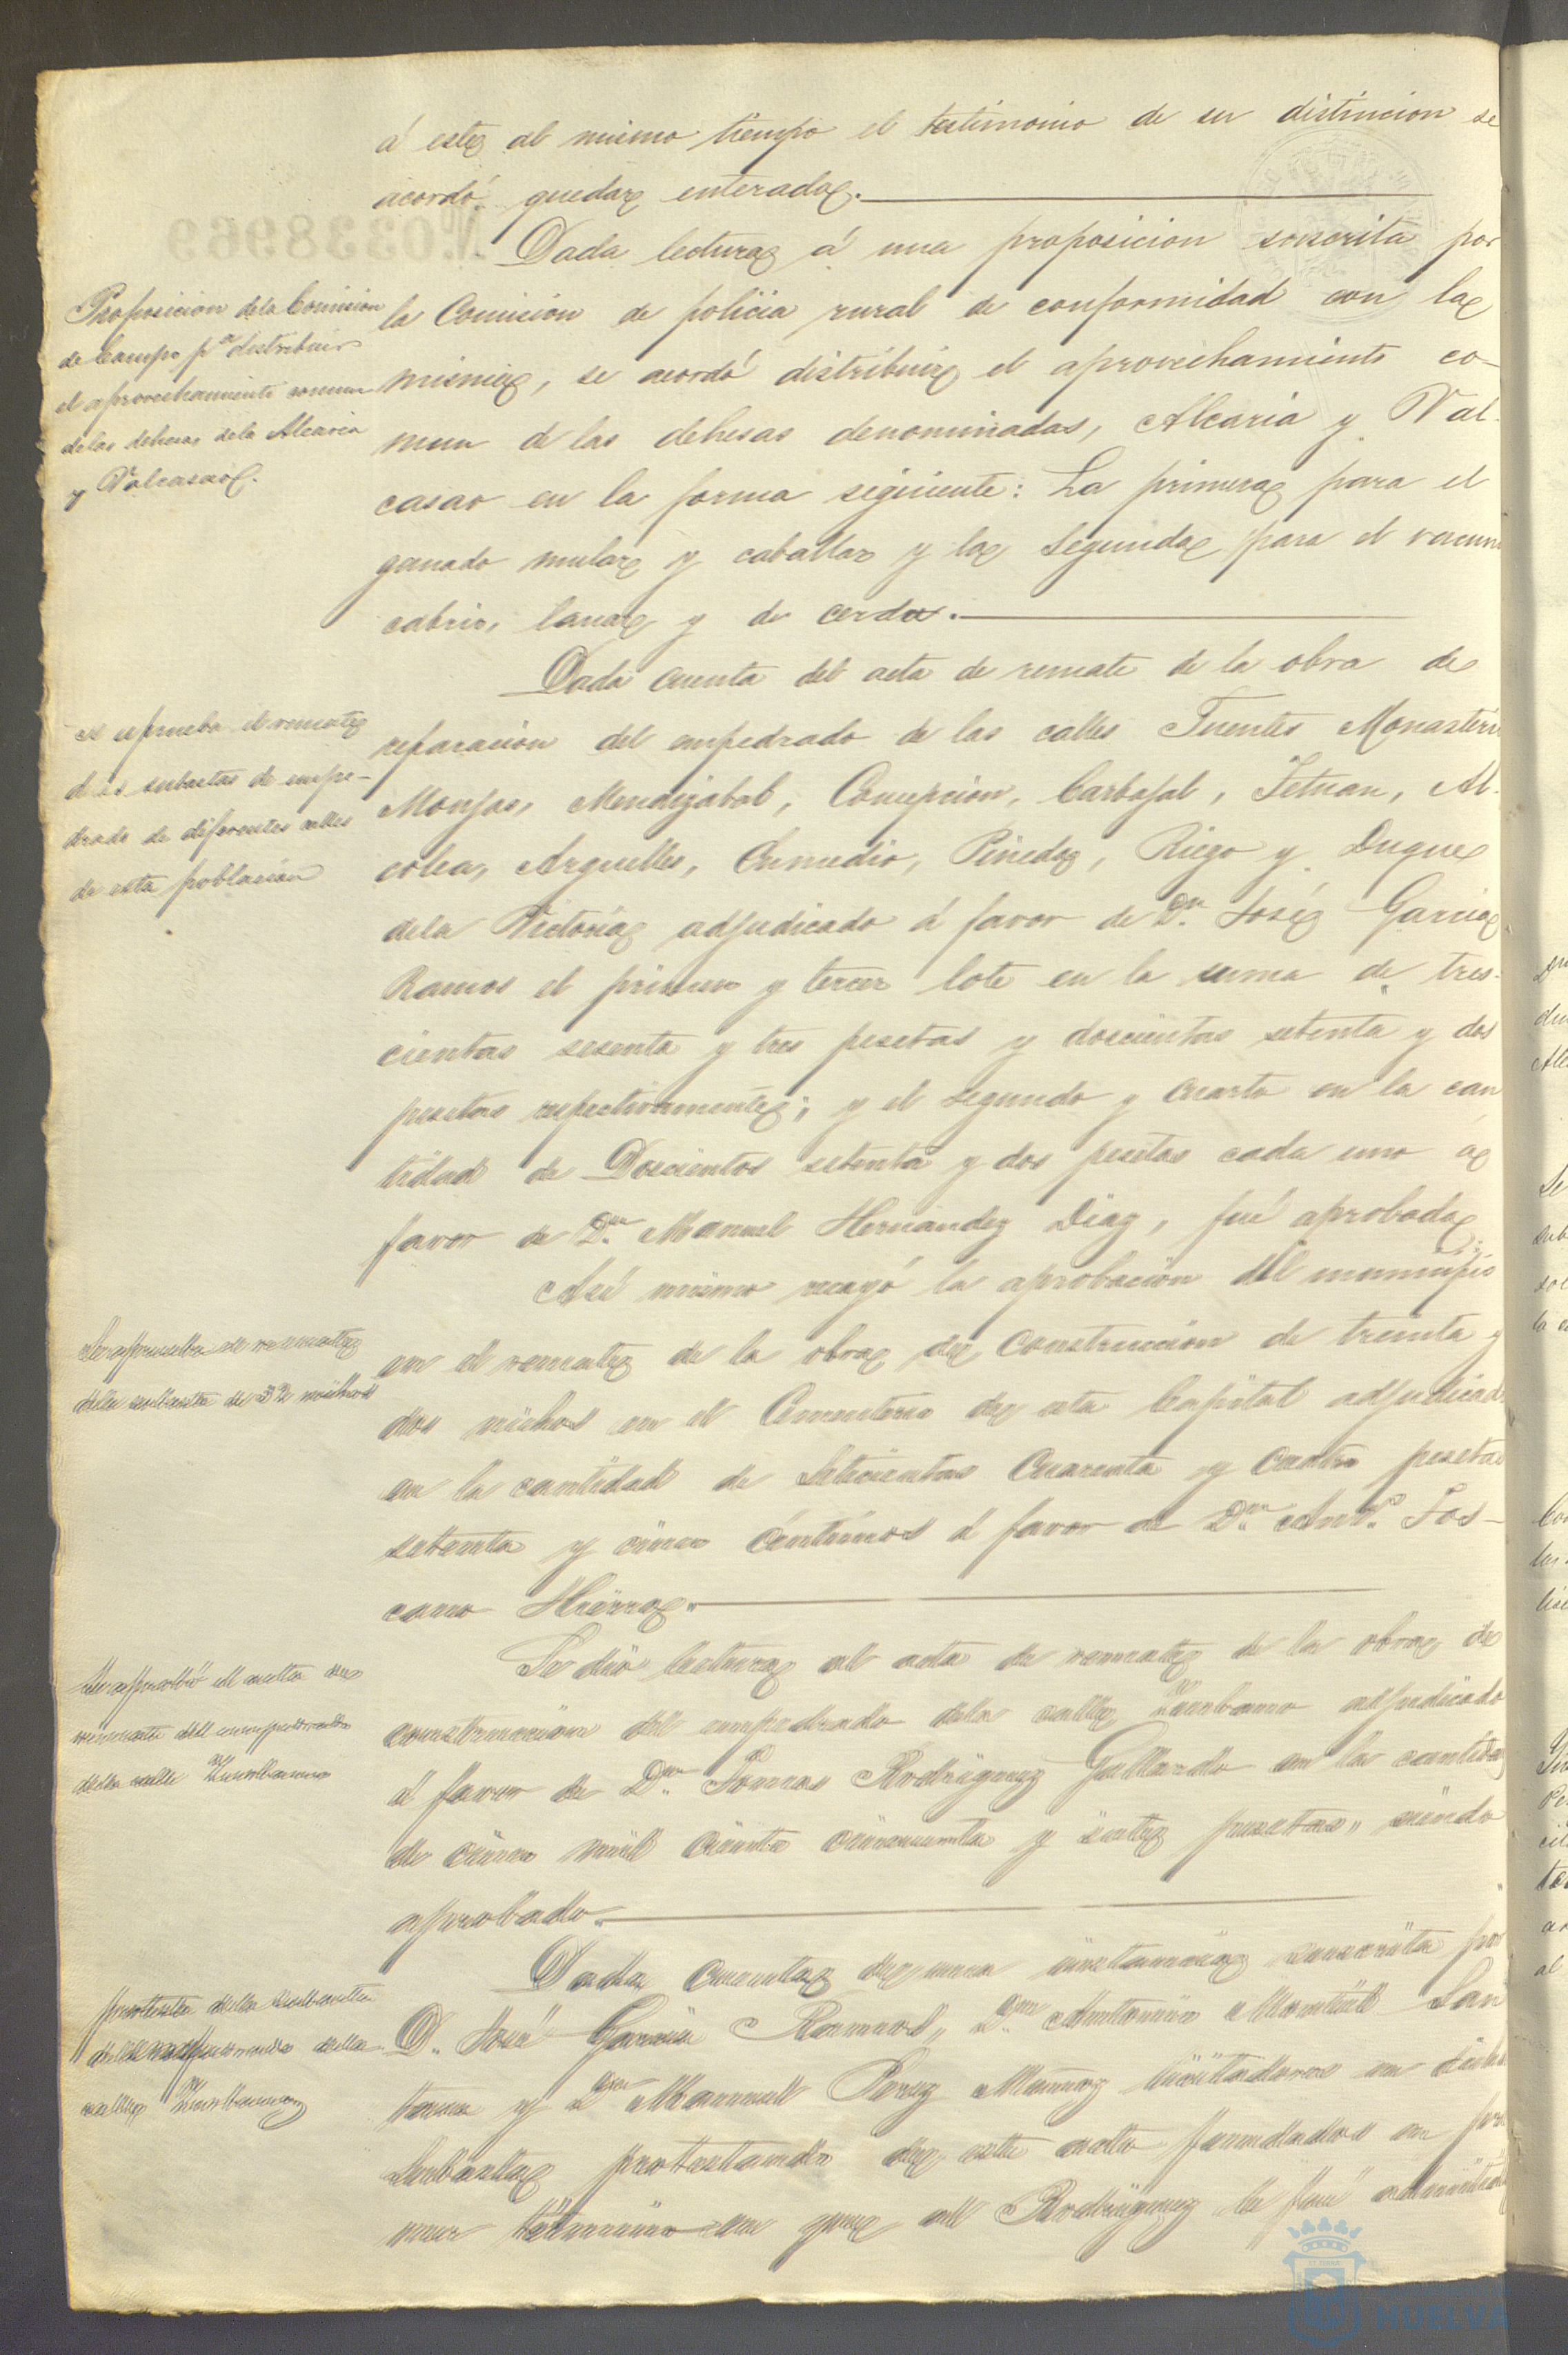 á este al mismo tiempo el testimonio de su distincion se
acordó quedar enterada.
Nº 0338969
Dada lectura á una proposicion suscrita por
la Comision de policia rural de conformidad con la
misma, se acordó distribuir el aprovechamiento co-
mun de las dehesas denominadas, Alcaria y Val-
casao en la forma siguiente: La primera para el
ganado mular y caballar y la segunda para el vacuno
cabrio, lanar y de cerda.
Proposicion dela Comision
de Campo pª distribuir
el aprovechamiento comun
delas dehesas dela Alcaria
y Valcasao.
Dada cuenta del acta de remate de la obra de
reparacion del empedrado de las calles Fuentes Monasterio
Monjas, Mendizabal, Concepcion, Carbajal, Tetuan, Al-
colea, Arguelles, Enmedio, Pineda, Riego y Duque
dela Victoria adjudicado á favor de Dn. José Garcia
Ramos el primero y tercer lote en la suma de tres-
cientas sesenta y tres pesetas y doscientas setenta y dos
pesetas respectivamente; y el segundo y cuarto en la can
tidad de Doscientos setenta y dos pesetas cada uno a
favor de Dn. Manuel Hernandez Diaz, fué aprobada.
Se aprueba el remate
de subastas de empe-
drado de diferentes calles
de esta poblacion
Asi mismo recayó la aprobacion del municipio
en el remate de la obra de construccion de treinta y
dos nichos en el Cementerio de esta Capital adjudicado
en la cantidad de Setecientas Cuarenta y Cuatro pesetas
setenta y cinco céntimos á favor de Dn. Antº. Tos-
cano Hierro.
Se aprueba el remate
dela subasta de 32 nichos
Se dió lectura al acta de remate de la obra de
construccion del empedrado dela calle Zurbano adjudicado
á favor de Dn. Tomas Rodriguez Gallardo en la cantidad
de cinco mil ciento cincuenta y siete pesetas, siendo
aprobado.
Se aprobó el acta de
remate del empedrado
dela calle Zurbano
Dada Cuenta de una instancia suscrita por
D. José Garcia Ramos, Dn. Antonio Montiel San
tana y Dn. Manuel Perez Muñoz licitadores en dicha
Subasta protestando de este acto fundados en pri
mer término en que al Rodriguez le fué admitida
protesta dela subasta
del empedrado dela
calle Zurbano
HUELVA